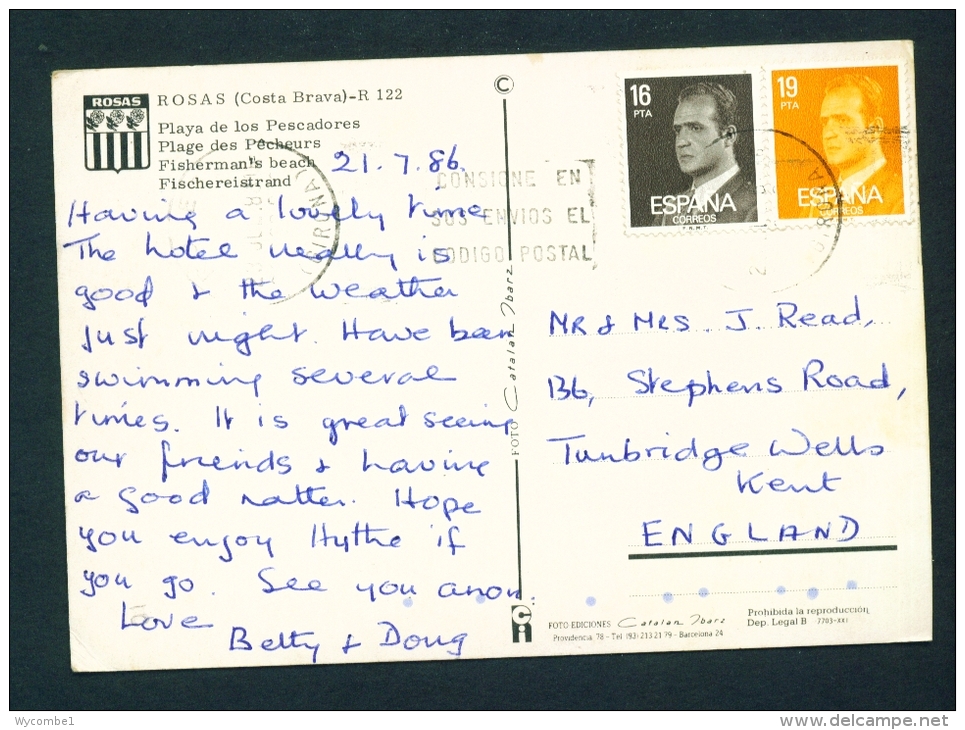 ROSAS
ROSAS (Costa Brava)-R 122
Playa de los Pescadores
Plage des Pêcheurs
Fisherman's beach
Fischereistrand
21.7.86.
Having a lovely time
The hotel really is
good & the weather
just right. Have been
swimming several
times. It is great seeing
our friends & having
a good natter. Hope
you enjoy Hythe if
you go. See you anon.
Love
Betty & Doug
CONSIGNE EN
SUS ENVIOS EL
CODIGO POSTAL
(GIRONA)
16
PTA
ESPAÑA
CORREOS
F.N.M.T.
19
PTA
ESPAÑA
CORREOS
Mr & Mrs J. Read,
136, Stephens Road,
Tunbridge Wells
Kent
ENGLAND
C
FOTO Catalan Ibarz
Ci
FOTO-EDICIONES Catalan Ibarz
Providencia, 78 - Tel (93) 213 21 79 - Barcelona 24
Prohibida la reproducción
Dep. Legal B -7703-XXI
Wycombe1
delcampe.net